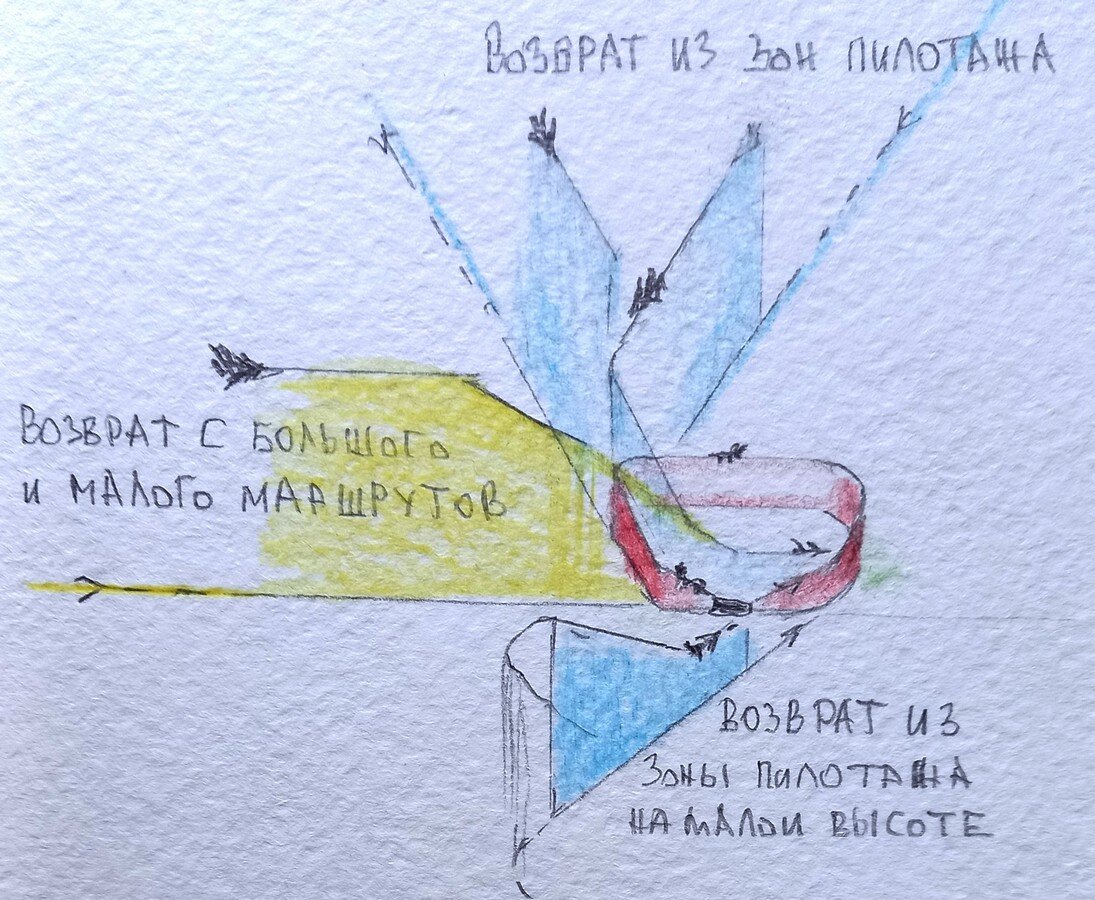 ВОЗВРАТ ИЗ ЗОН ПИЛОТАЖА
ВОЗВРАТ С БОЛЬШОГО
И МАЛОГО МАРШРУТОВ
ВОЗВРАТ ИЗ
ЗОНЫ ПИЛОТАЖА
НА МАЛОЙ ВЫСОТЕ